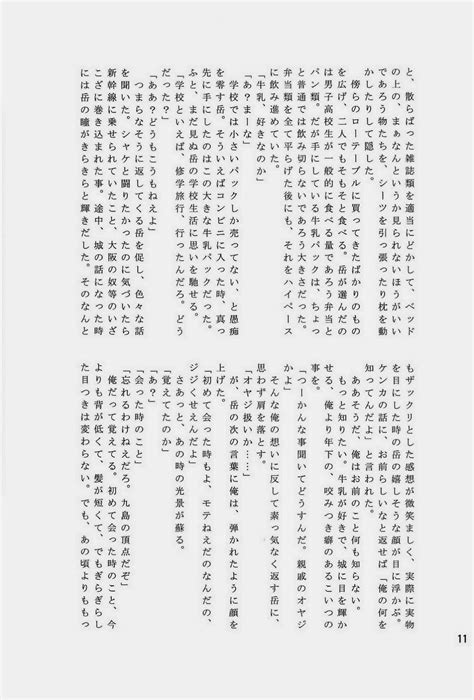 と、散らばった雑誌類を適当にどかして、ベッド
の上の、まぁなんというか見られないほうがいい
であろう物たちを、シーツを引っ張ったり枕を動
かしたりして隠した。
　傍らのローテーブルに買ってきたばかりのもの
を広げ、二人でもそもそと食べる。岳が選んだの
は男子高校生が一般的に食べる量であろう弁当と
パン類。だが手にしている牛乳パックは、ちょっ
と普通では飲み切らないであろう大きさだった。
弁当類を全て平らげた後にも、それをハイペース
に飲み進めていた。
「牛乳、好きなのか」
「あ？まーな」
　学校では小さいパックしか売ってない、と愚痴
を零す岳。そういえばコンビニに入った時、真っ
先に手にしたのはこの大きな牛乳パックだった。
ふと、まだ見ぬ岳の学校生活に思いを馳せる。
「学校といえば、修学旅行、行ったんだろ。どう
だった？」
「ああ？どうもこうもねえよ」
　つまらなそうに返してくる岳を促し、色々な話
を聞いた。シャケと闘りたかったのに気づいたら
新幹線に乗せられていたこと、大阪の奴等のいざ
こざに巻き込まれた事。途中、城の話になった時
には岳の瞳がきらきらと輝きだした。そのなんと
もザックリとした感想が微笑ましく、実際に実物
を目にした時の岳の嬉しそうな顔が目に浮かぶ。
ケンカの話に、お前らしいなと返せば「俺の何を
知ってんだよ」と言われた。
　ああそうだ、俺はお前のこと何も知らない。
　もっと知りたい。牛乳が好きで、城に目を輝か
せる、俺より年下の、咬みつき癖のあるこいつの
事を。
「つーかんな事聞いてどうすんだ。親戚のオヤジ
かよ」
　そんな俺の想いに反して素っ気なく返す岳に、
思わず肩を落とす。
「オヤジ扱いか……」
　が、岳の次の言葉に俺は、弾かれたように顔を
上げた。
「初めて会った時もよ、モテねえだのなんだの、
ジジくせえんだよ」
　さあっと、あの時の光景が蘇る。
「覚えてたのか」
「あ？」
「会った時のこと」
「忘れるわけねえだろ。九島の頂点だぞ」
　俺だって覚えてる。初めて会った時のこと、今
よりも背が低くて、髪が短くて、でもぎらぎらし
た目つきは変わらない。でも、あの頃よりももっ
11